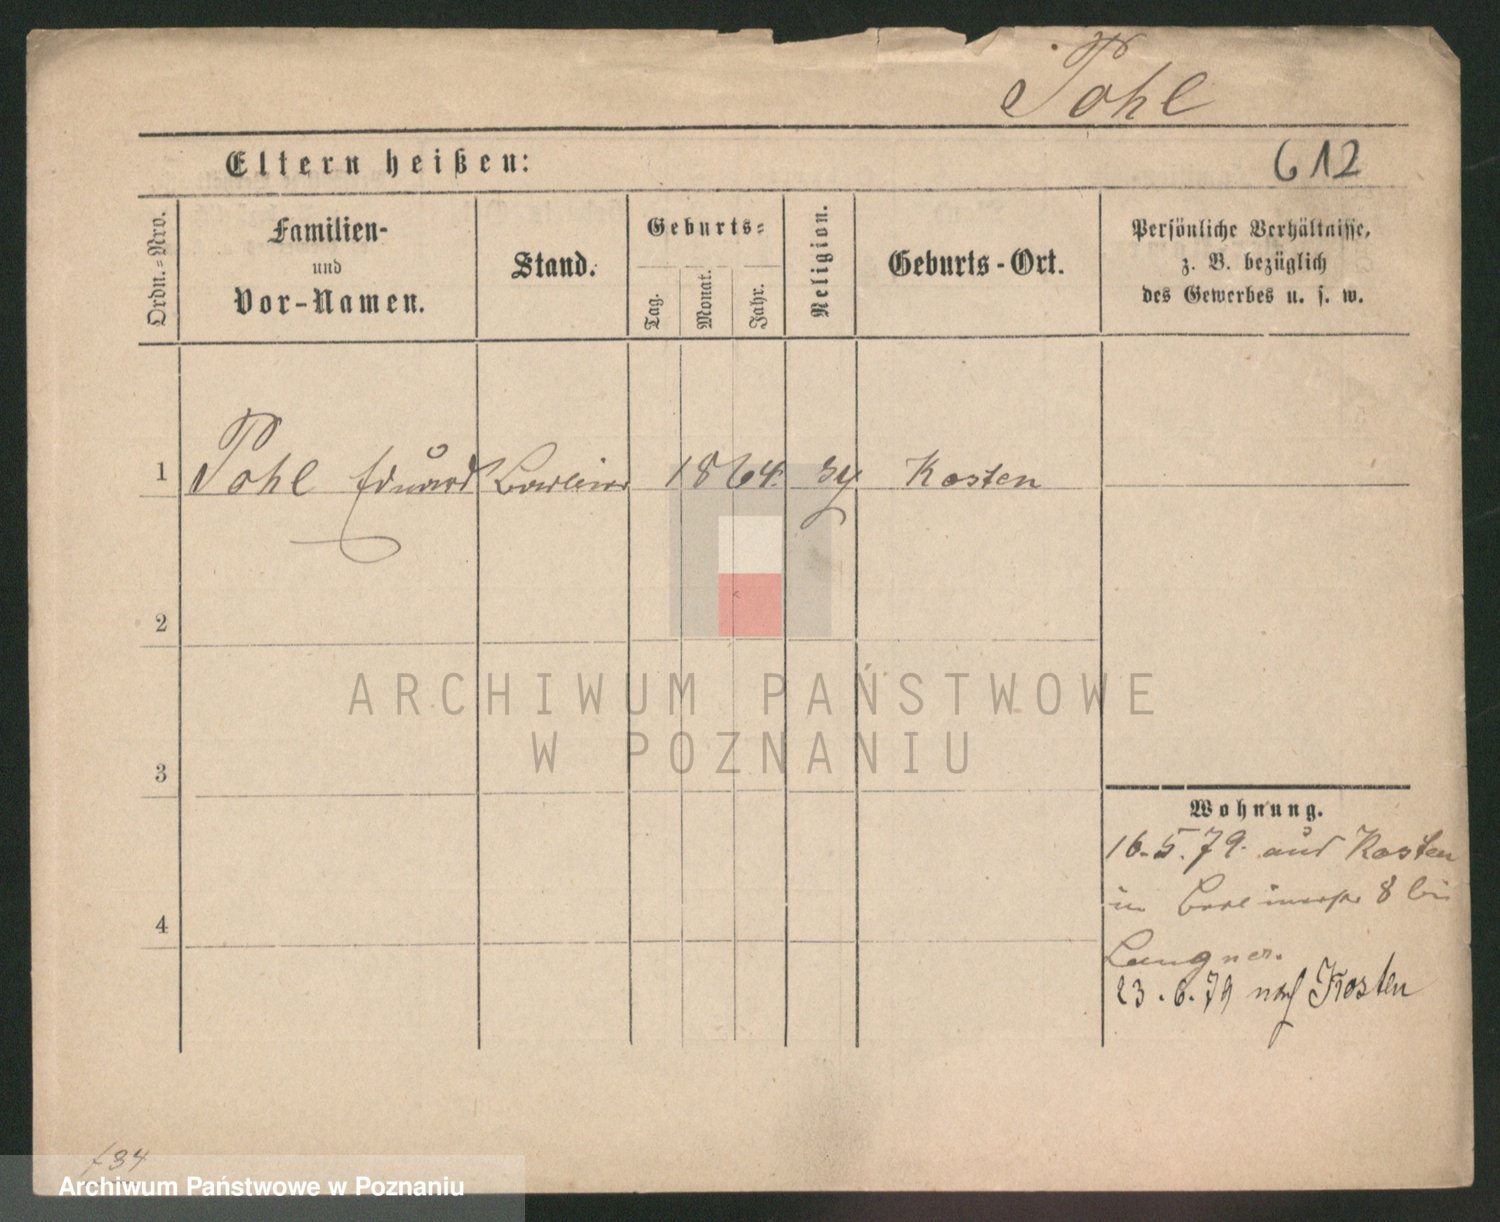 Pohl
Eltern heißen:
612
Ordn.=Nro.
Familien-
und
Vor-Namen.
Stand.
Geburts=
Tag.
Monat.
Jahr.
Religion.
Geburts-Ort.
Persönliche Verhältnisse,
z. B. bezüglich
des Gewerbes u. s. w.
1 Pohl Eduard 1864. Kosten
2
ARCHIWUM PAŃSTWOWE
W POZNANIU
3
Wohnung.
16.5.79. aus Kosten
in 8 bei
4
Langner.
23.6.79 nach Kosten
Archiwum Państwowe w Poznaniu